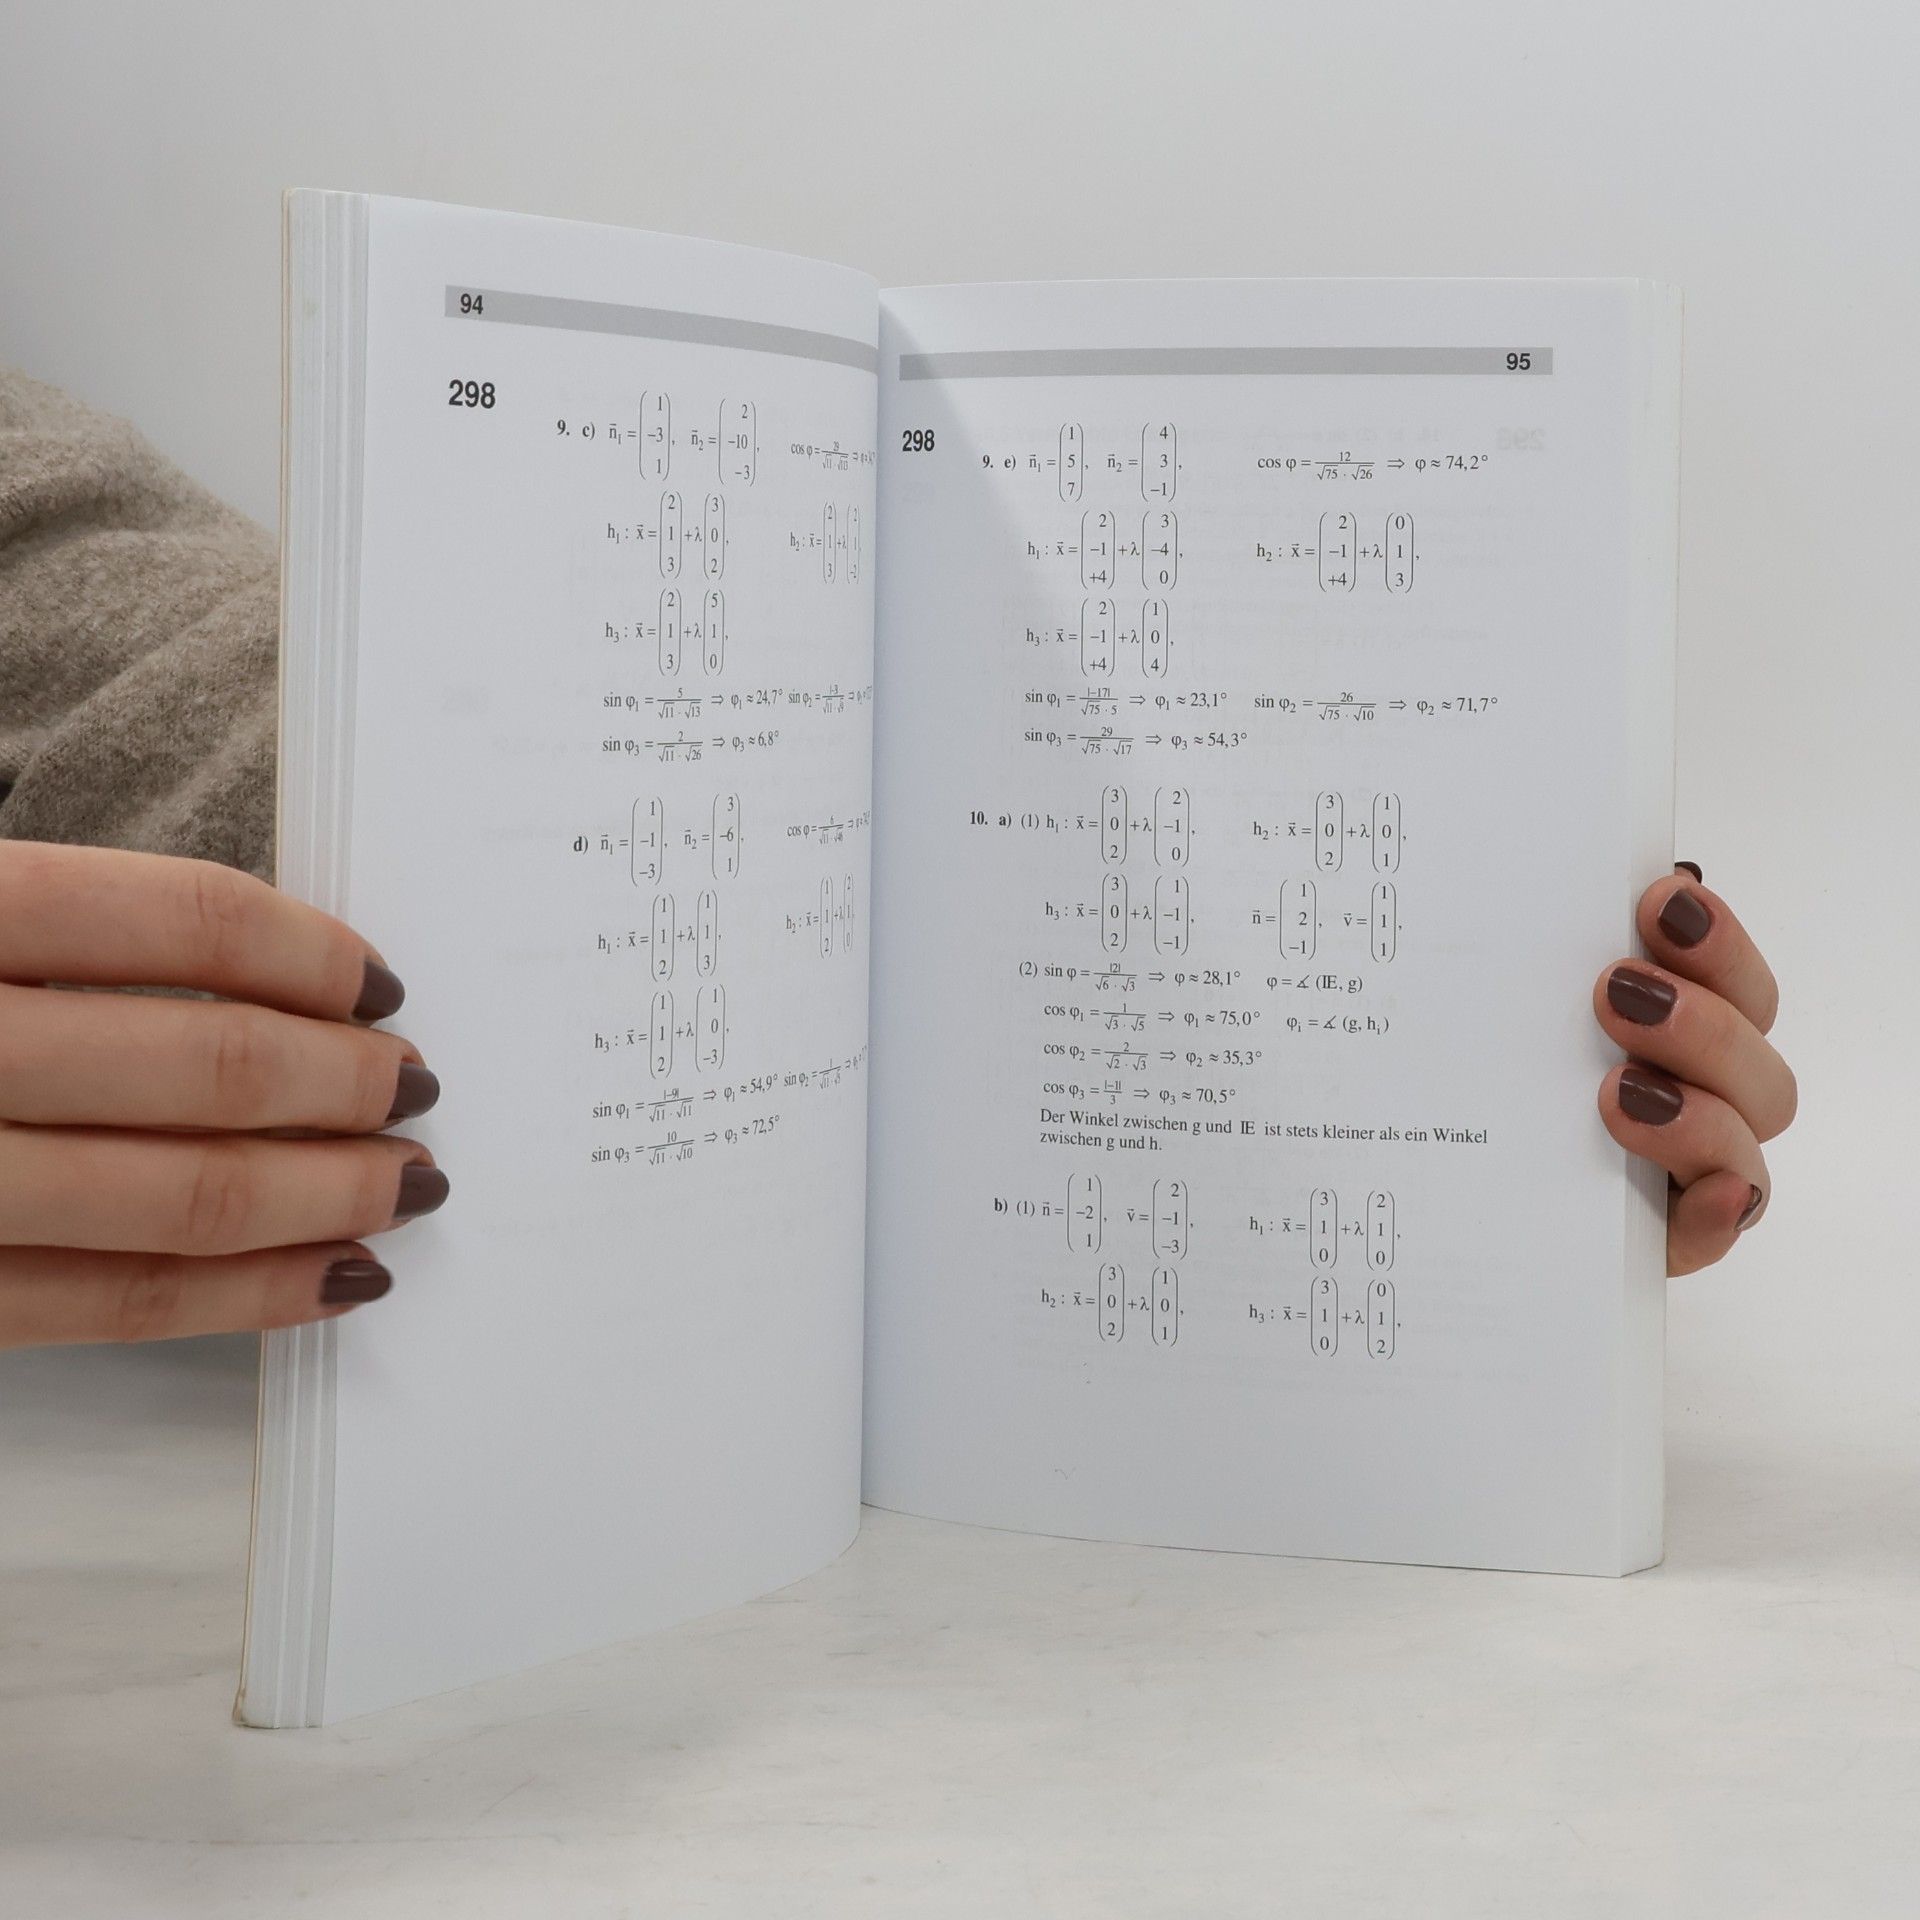 94
298
9. c) n⃗₁ = (1 −3 1), n⃗₂ = (2 −10 −3), cos φ = 29/(√11 · √113)
h₁ : x⃗ = (2 1 3) + λ (3 0 2), h₂ : x⃗ = (2 1 3) + λ (2 1 −2),
h₃ : x⃗ = (2 1 3) + λ (5 1 0),
sin φ₁ = 5/(√11 · √13) ⇒ φ₁ ≈ 24,7° sin φ₂ = |−3|/(√11 · √9)
sin φ₃ = 2/(√11 · √26) ⇒ φ₃ ≈ 6,8°
d) n⃗₁ = (1 −1 −3), n⃗₂ = (3 −6 1), cos φ = 6/(√11 · √46)
h₁ : x⃗ = (1 1 2) + λ (1 1 3), h₂ : x⃗ = (1 1 2) + λ (2 1 0),
h₃ : x⃗ = (1 1 2) + λ (1 0 −3),
sin φ₁ = |−9|/(√11 · √11) ⇒ φ₁ ≈ 54,9° sin φ₂ = 1/(√11 · √5)
sin φ₃ = 10/(√11 · √10) ⇒ φ₃ ≈ 72,5°
95
298
9. e) n⃗₁ = (1 5 7), n⃗₂ = (4 3 −1), cos φ = 12/(√75 · √26) ⇒ φ ≈ 74,2°
h₁ : x⃗ = (2 −1 +4) + λ (3 −4 0), h₂ : x⃗ = (2 −1 +4) + λ (0 1 3),
h₃ : x⃗ = (2 −1 +4) + λ (1 0 4),
sin φ₁ = |−17|/(√75 · 5) ⇒ φ₁ ≈ 23,1° sin φ₂ = 26/(√75 · √10) ⇒ φ₂ ≈ 71,7°
sin φ₃ = 29/(√75 · √17) ⇒ φ₃ ≈ 54,3°
10. a) (1) h₁ : x⃗ = (3 0 2) + λ (2 −1 0), h₂ : x⃗ = (3 0 2) + λ (1 0 1),
h₃ : x⃗ = (3 0 2) + λ (1 −1 −1), n⃗ = (1 2 −1), v⃗ = (1 1 1),
(2) sin φ = |2|/(√6 · √3) ⇒ φ ≈ 28,1° φ = ∡ (IE, g)
cos φ₁ = 1/(√3 · √5) ⇒ φ₁ ≈ 75,0° φᵢ = ∡ (g, hᵢ)
cos φ₂ = 2/(√2 · √3) ⇒ φ₂ ≈ 35,3°
cos φ₃ = |−1|/3 ⇒ φ₃ ≈ 70,5°
Der Winkel zwischen g und IE ist stets kleiner als ein Winkel
zwischen g und h.
b) (1) n⃗ = (1 −2 1), v⃗ = (2 −1 −3), h₁ : x⃗ = (3 1 0) + λ (2 1 0),
h₂ : x⃗ = (3 0 2) + λ (1 0 1), h₃ : x⃗ = (3 1 0) + λ (0 1 2),